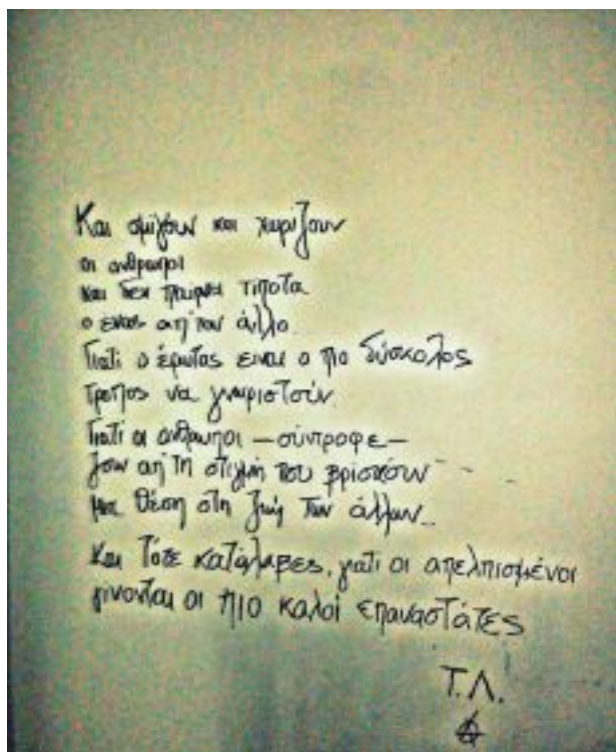 Και σμίγουν και χωρίζουν
οι ανθρωποι
και δεν παιρνει τιποτα
ο ενας απ' τον άλλο.
Γιατί ο έρωτας ειναι ο πιο δύσκολος
τροπος να γνωριστούν.
Γιατί οι ανθρωποι – σύντροφε –
ζουν απ' τη στιγμή που βρίσκουν
μια θέση στη ζωή των άλλων...
Και τότε κατάλαβες, γιατι οι απελπισμένοι
γινονται οι πιο καλοί επαναστάτες
Τ.Λ.